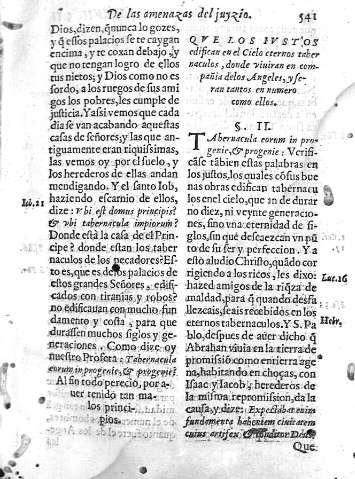 De las amenazas del juyzio. 541
Dios, dizen, q̃nunca lo gozes,
y q̃ essos palacios se te caygan
encima, y te coxan debaxo, y
que no tengan logro de ellos
tus nietos; y Dios como no es
sordo, a los ruegos de sus ami
gos los pobres, les cumple de
justicia. Y assi vemos que cada
dia se van acabando aquestas
casas de señores, y las que an-
tiguamente eran riquissimas,
las vemos oy por el suelo, y
los herederos de ellas andan
mendigando. Y el santo Iob,
haziendo escarnio de ellos,
Iob, 21
dize: Vbi est domus principis?
& vbi tabernacula impiorum?
Donde està la casa del Prin-
cipe? donde estan los taber
naculos de los pecadores? Es-
to es, que es de los palacios de
estos grandes Señores, edifi-
cados con tiranias y robos?
no edificauan con mucho fun
damento y costa, para que
durassen muchos siglos y ge-
neraciones. Como dize oy
nuestro Profeta: Tabernacula
eorum in progenie, & progenie?
Al fin todo perecio, por a-
uer tenido tan ma-
los princi-
pios.
QVE LOS IVSTOS
edifican en el Cielo eternos taber
naculos, donde viuiran en com-
pañia delos Angeles, y se-
ran tantos en numero
como ellos.
§. II.
Tabernacula eorum in pro-
genie, & progenie: Verifi-
canse tãbien estas palabras en
los justos, los quales con sus bue
nas obras edifican tabernacu
los en el cielo, que an de durar
no diez, ni veynte generacio-
nes, sino vna eternidad de si-
glos, sin que descaezcan vn pũ
to de su ser y perfeccion. Y a
esto aludio Christo, quãdo cor
rigiendo a los ricos, les dixo:
Luc. 16
hazed amigos de la riq̃za de
maldad, para q̃ quando desfa
llezcais, seais recebidos en los
eternos tabernaculos. Y S. Pa
Hebr.
blo, despues de auer dicho q̃
Abrahan viuia en la tierra de
promission como en tierra age
na, habitando en choças, con
Isaac y Iacob, herederos de
la misma repromission, da la
causa, y dize: Expectabat enim
fundamenta habentem ciuitatem
cuius artifex & conditor Deus.
Que